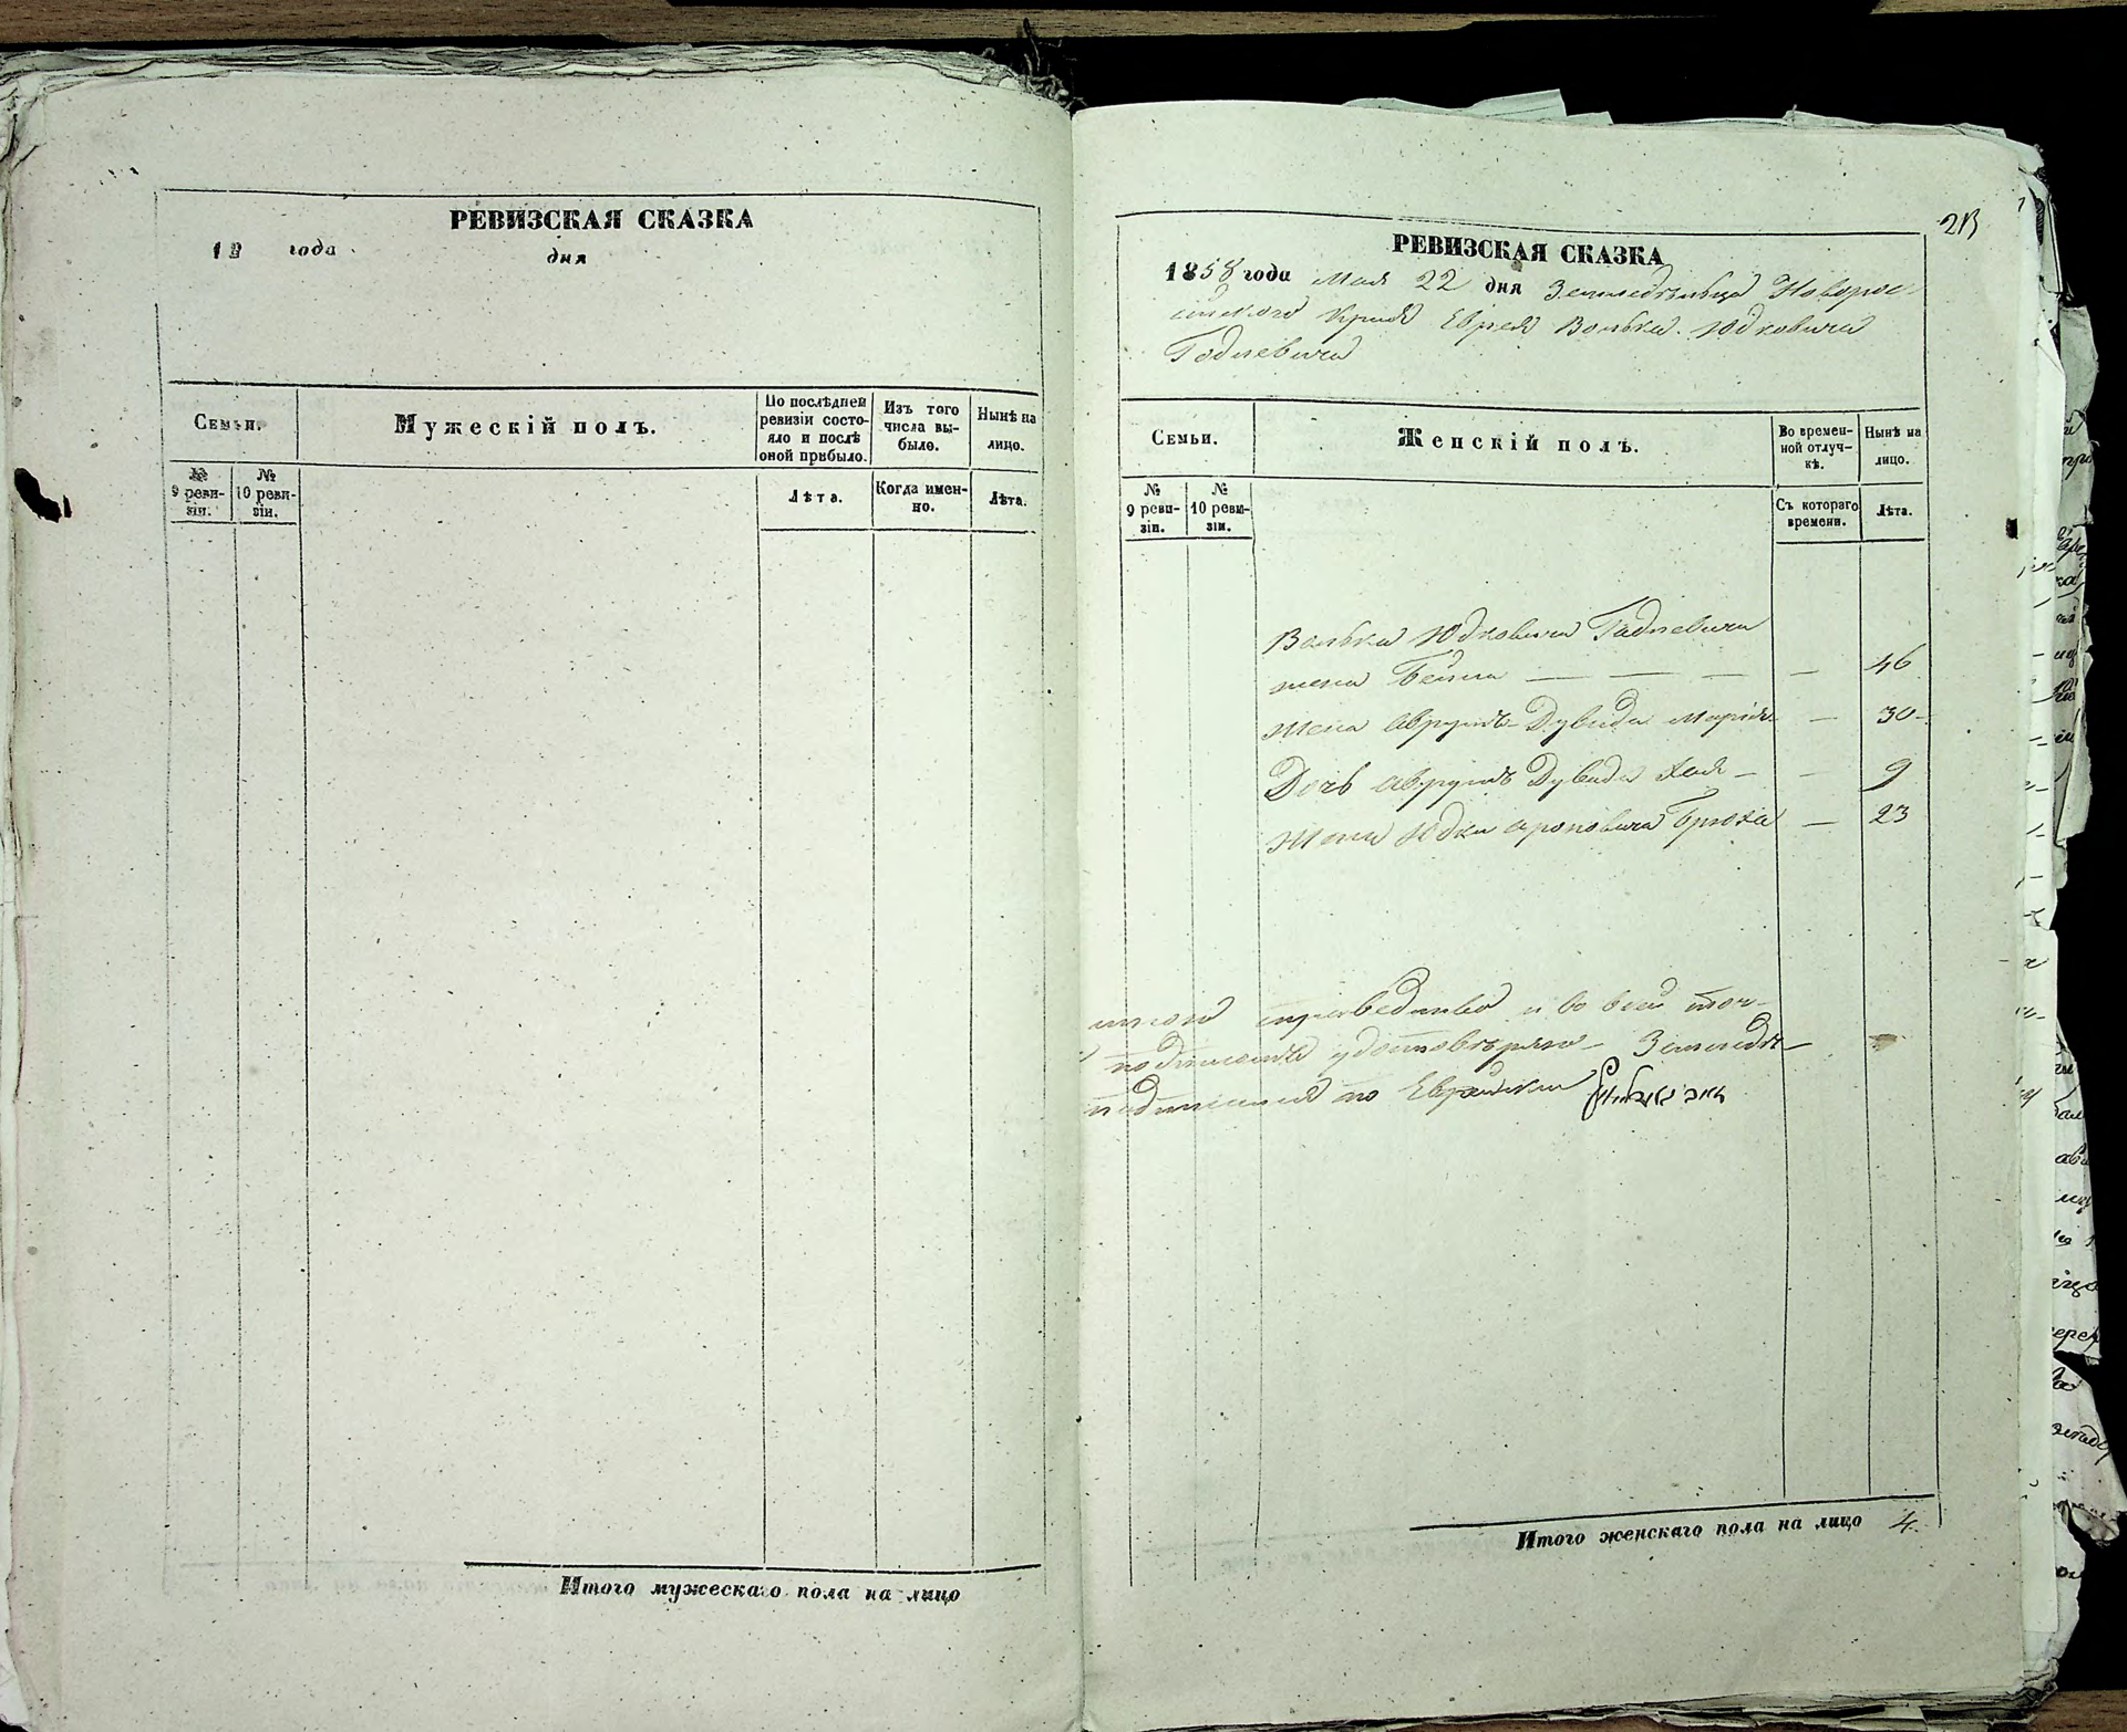 РЕВИЗСКАЯ СКАЗКА
18 года дня
Семьи.
Мужескій полъ.
По послѣдней ревизіи состояло и послѣ оной прибыло.
Изъ того числа выбыло.
Нынѣ на лицо.
№ 9 ревизіи.
№ 10 ревизіи.
Лѣта.
Когда именно.
Лѣта.
Итого мужескаго пола на лицо
РЕВИЗСКАЯ СКАЗКА
1858 года Мая 22 дня Земледѣльца Новорос-
сійского Края Еврея Волька Юдковича
Годлевича
Семьи.
Женскій полъ.
Во временной отлучкѣ.
Нынѣ на лицо.
№ 9 ревизіи.
№ 10 ревизіи.
Съ котораго времени.
Лѣта.
Волька Юдковича Годлевича
жена Бейла — — — — 46
Жена Аврумъ-Дувида Марія — 30
Дочь Аврумъ Дувида Хая — — 9
Жена Юдки Ароновича Брюха — 23
справедливо и во всей точ-
удостовѣряю Земледѣ-
по Еврейски
Итого женскаго пола на лицо 4.